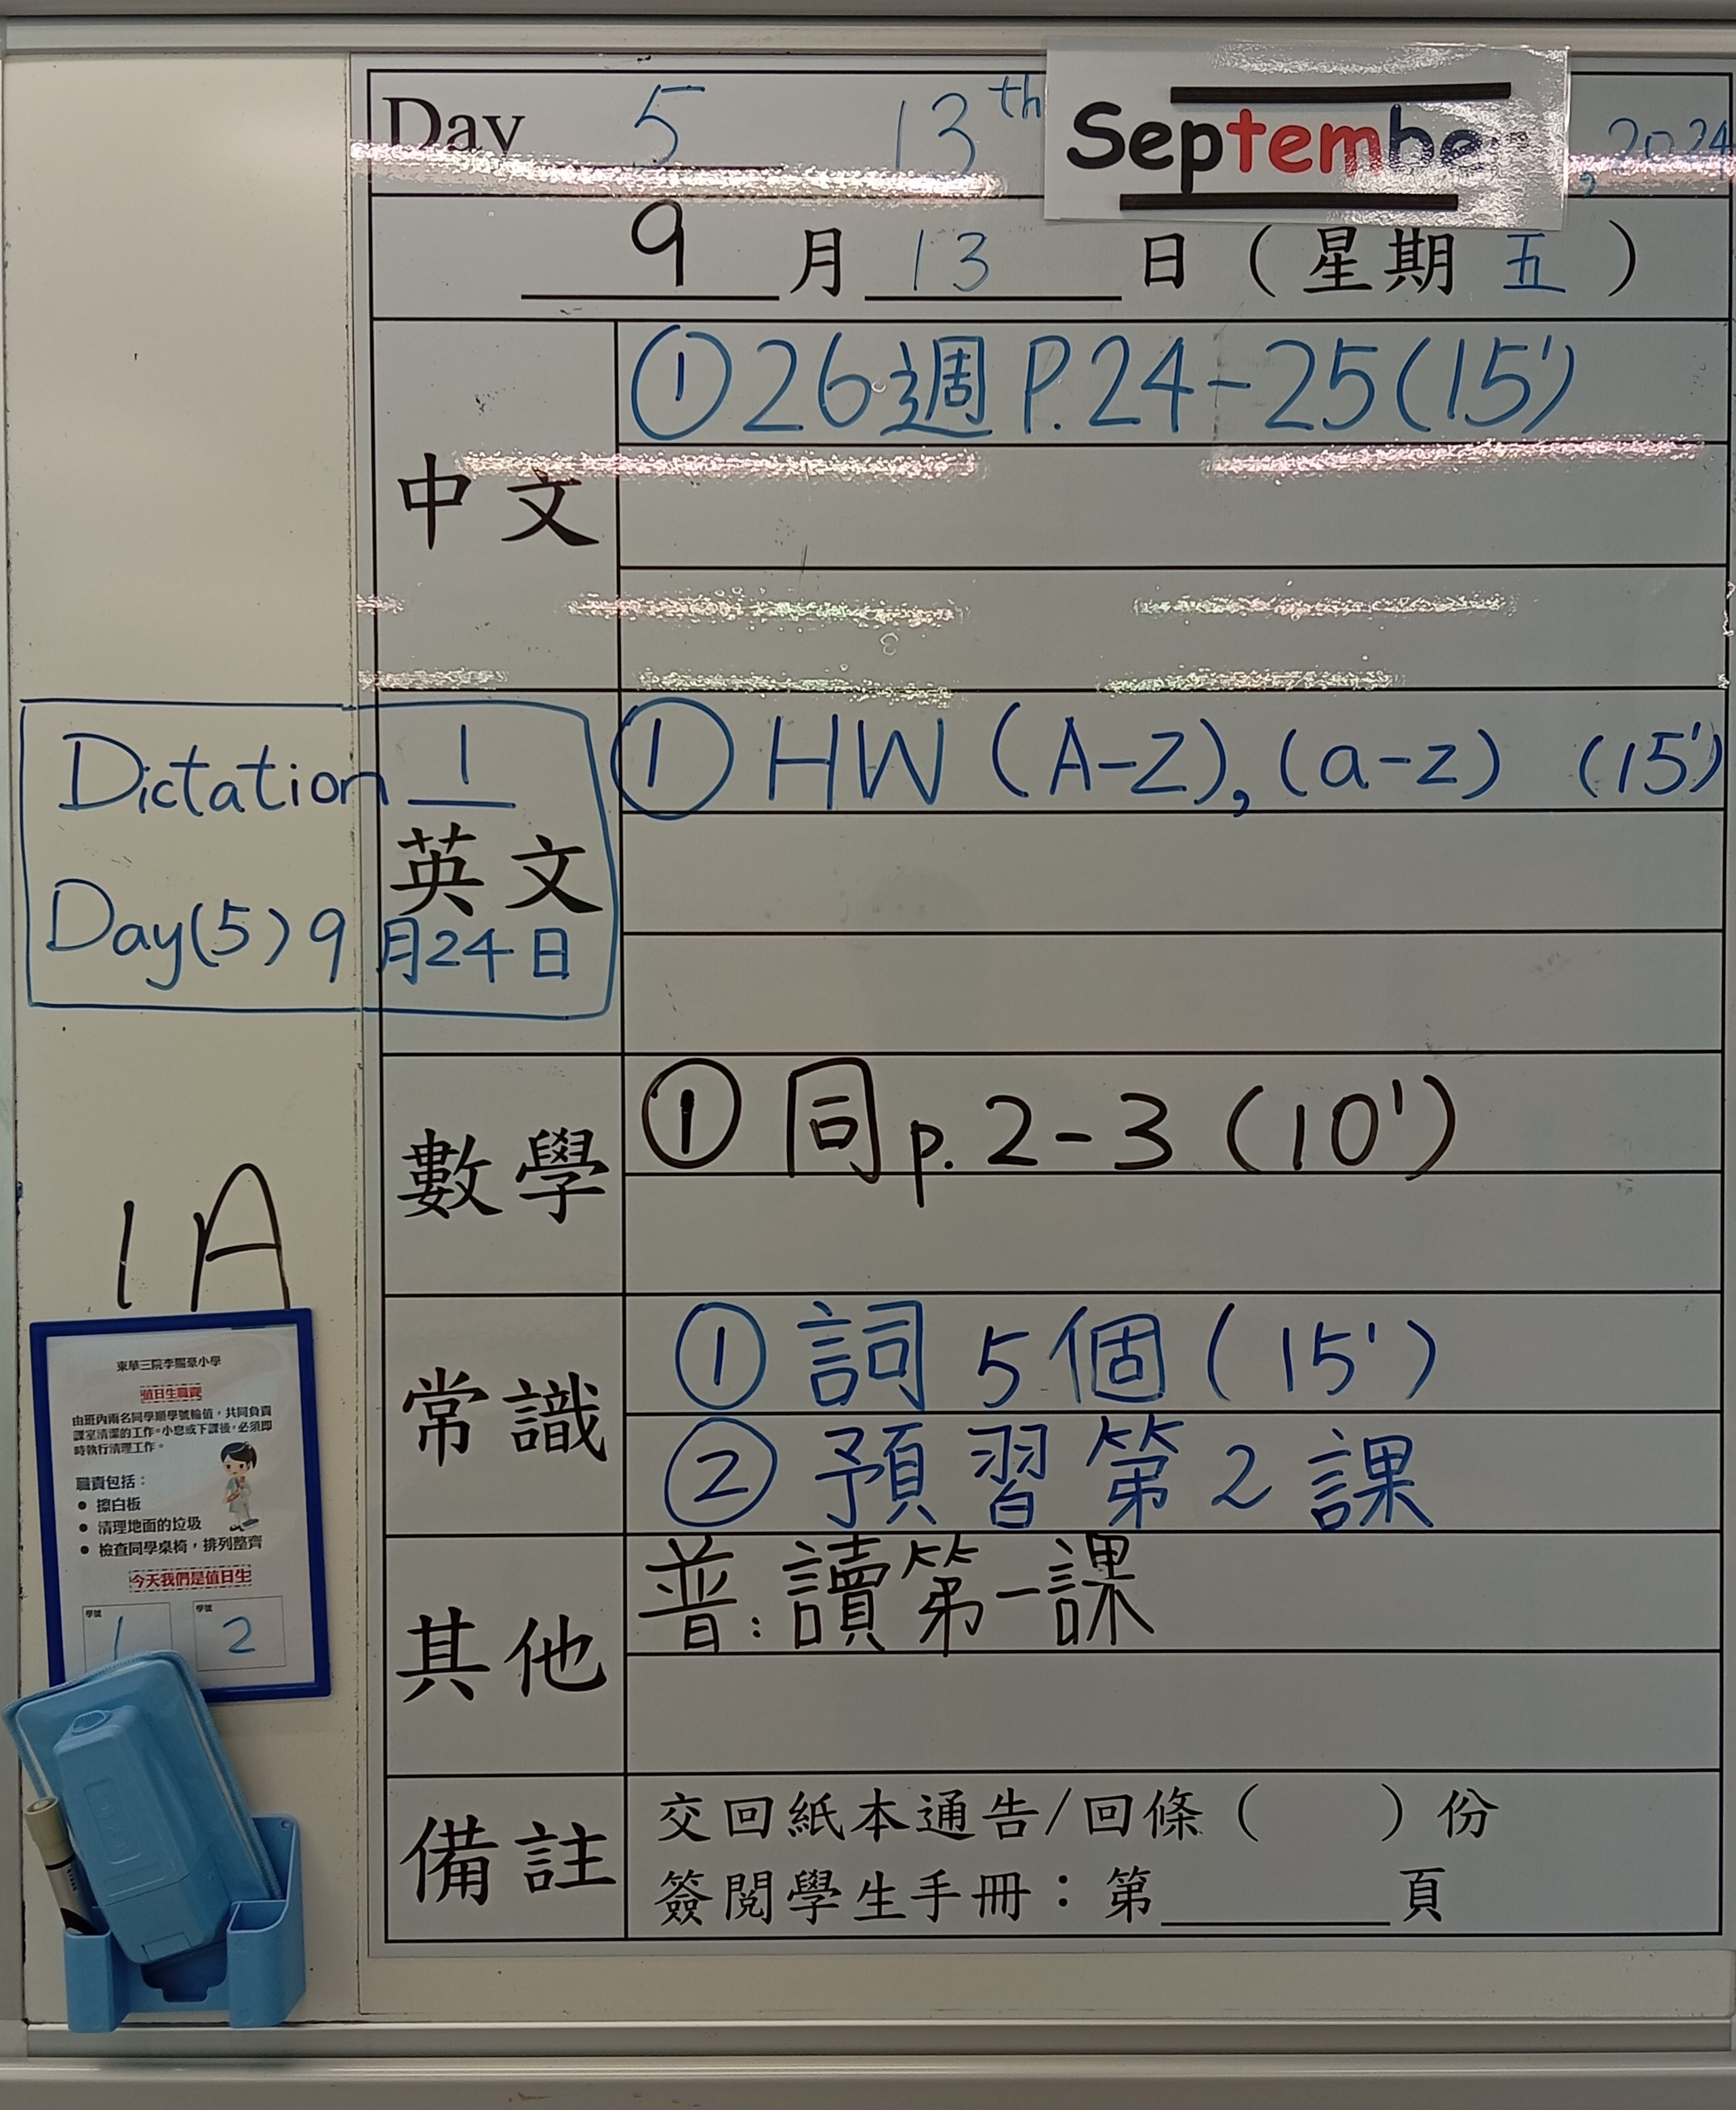 Day 5 13th September, 2024
9月13日（星期五）
中文
①26週 P.24-25(15')
Dictation 1
Day(5) 9月24日
英文
① HW (A-Z), (a-z) (15')
數學
① 同 p.2-3 (10')
1A
常識
① 詞5個(15')
② 預習第2課
其他
普:讀第一課
備註
交回紙本通告/回條（ ）份
簽閱學生手冊：第______頁
值日生職責
由班內兩名同學順學號輪值，共同負責
課室清潔的工作。小息或下課後，必須即
時執行清理工作。
職責包括：
● 擦白板
● 清理地面的垃圾
● 檢查同學桌椅，排列整齊
今天我們是值日生
學號 學號
1 2